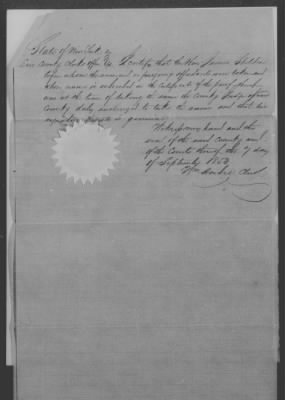 State of New York
County Clerks Office ss I certify that the Hon James Sheldon
before whom the annexed or foregoing affidavits were taken and
whose name is subscribed in the certificate of the proof thereof
was at the time of taking the same the County Judge of said
County duly authorized to take the same and that his
signature is genuine
Witness my hand and the
seal of the said County and
of the Courts thereof the 7 day
of September 1853
Wm Clerk